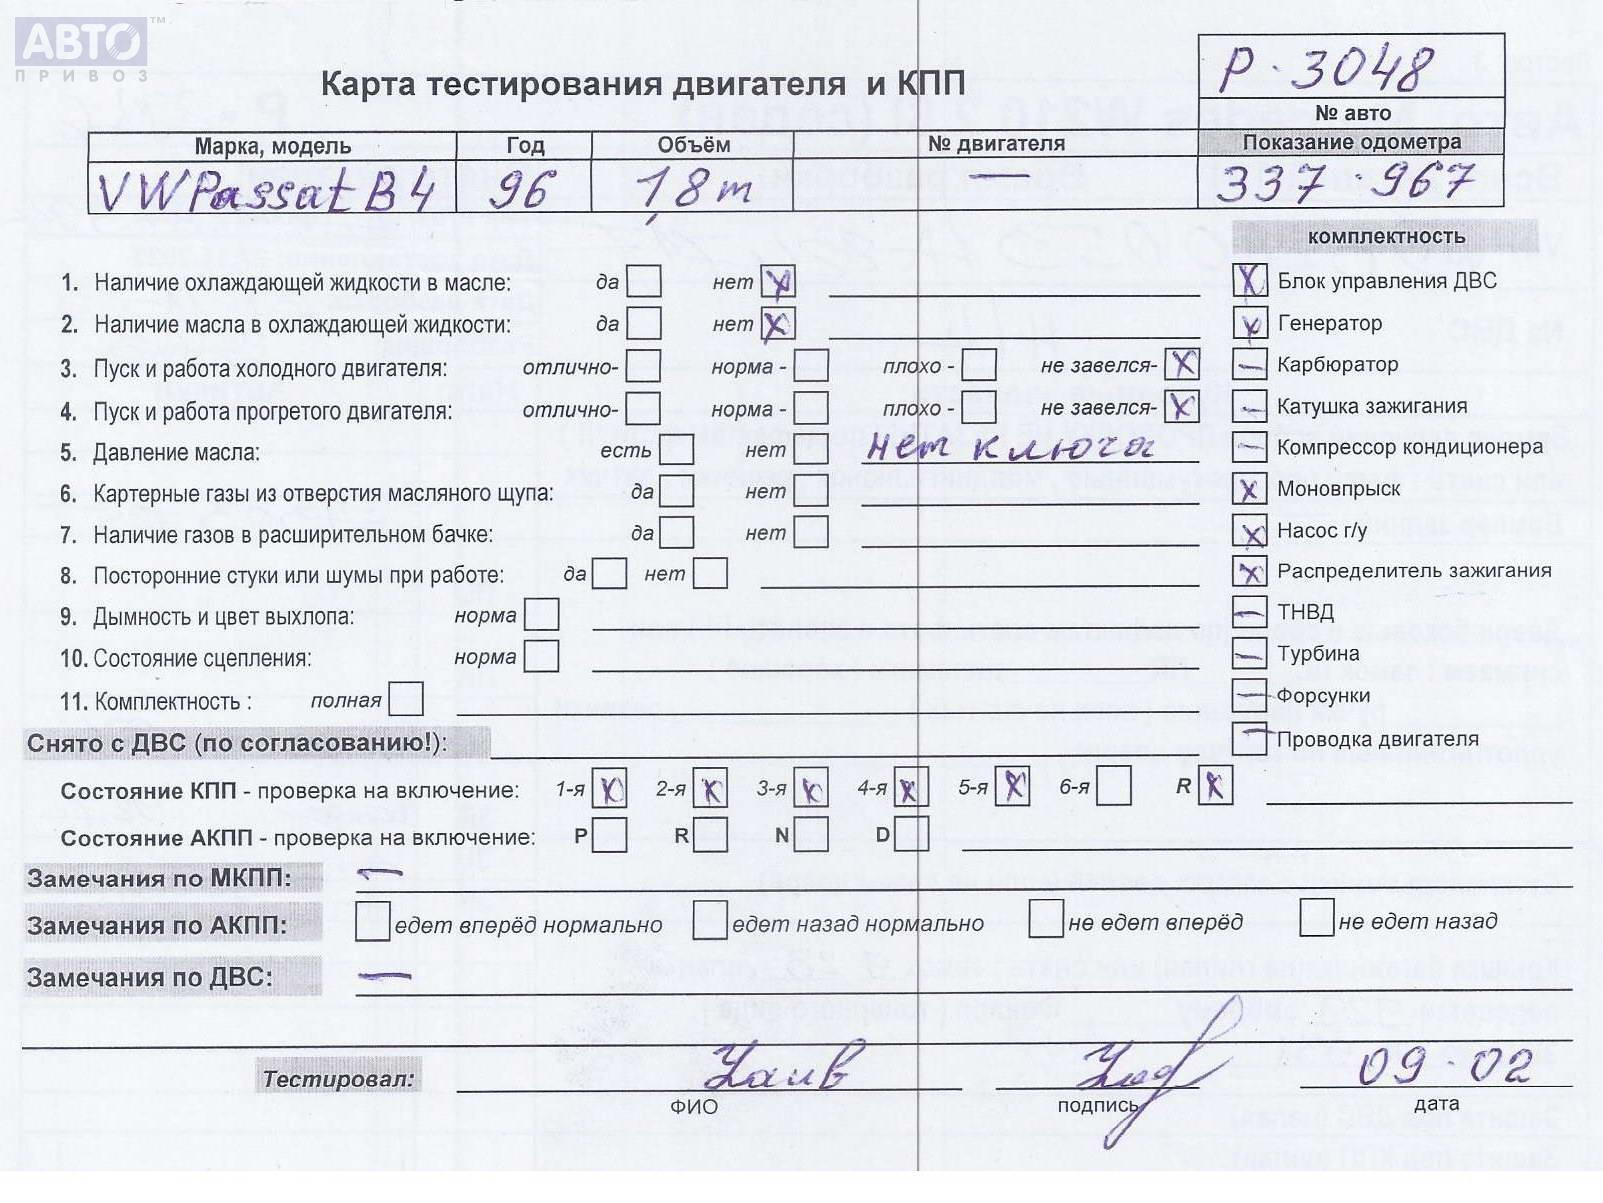 АВТО™
ПРИВОЗ
Карта тестирования двигателя и КПП
Р - 3048
№ авто
Марка, модель Год Объём № двигателя Показание одометра
VW Passat B4 96 1,8 m — 337 967
комплектность
1. Наличие охлаждающей жидкости в масле: да нет X
X Блок управления ДВС
2. Наличие масла в охлаждающей жидкости: да нет X
X Генератор
3. Пуск и работа холодного двигателя: отлично- норма - плохо - не завелся- X
— Карбюратор
4. Пуск и работа прогретого двигателя: отлично- норма - плохо - не завелся- X
— Катушка зажигания
5. Давление масла: есть нет нет ключа
— Компрессор кондиционера
6. Картерные газы из отверстия масляного щупа: да нет
X Моновпрыск
7. Наличие газов в расширительном бачке: да нет
X Насос г/у
8. Посторонние стуки или шумы при работе: да нет
X Распределитель зажигания
9. Дымность и цвет выхлопа: норма
— ТНВД
10. Состояние сцепления: норма
— Турбина
11. Комплектность : полная
— Форсунки
Снято с ДВС (по согласованию!):
— Проводка двигателя
Состояние КПП - проверка на включение: 1-я X 2-я X 3-я X 4-я X 5-я X 6-я R X
Состояние АКПП - проверка на включение: P R N D
Замечания по МКПП: —
Замечания по АКПП: едет вперёд нормально едет назад нормально не едет вперёд не едет назад
Замечания по ДВС: —
Тестировал: 09 - 02
ФИО подпись дата